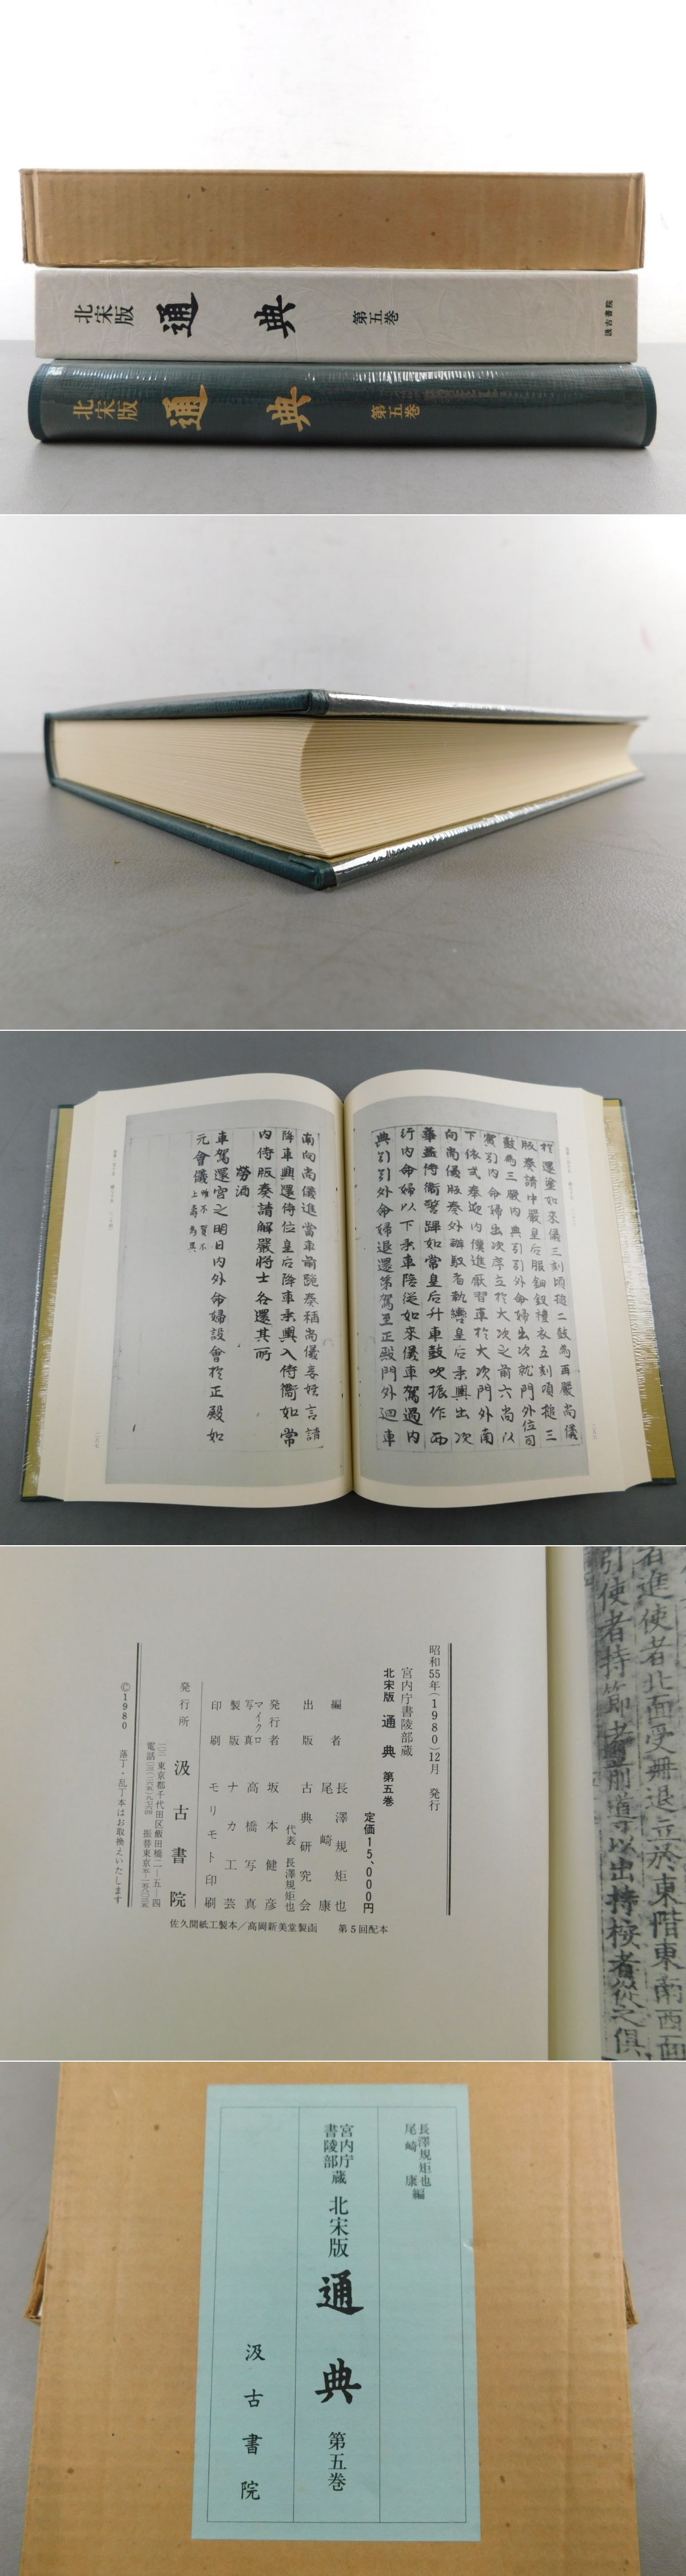 北宋版 通典 第五巻 汲古書院
北宋版 通典 第五巻
於還鑾如來儀三刻頃搥二鼓為再嚴尚儀
版奏請中嚴皇后服鈿釵禮衣五刻頃搥三
鼓為三嚴內典引引外命婦出次就門外位司
賓引內命婦出次序立於大次之前六尚以
下依式奉迎內僕進厭翟車於大次門外南
向尚儀版奏外辦馭者執轡皇后乘輿出次
華蓋侍衛警蹕如常皇后升車鼓吹振作而
行內命婦以下乘車陪從如來儀車駕過內
典引引外命婦退還第駕至正殿門外迴車
南向尚儀進當車前跪奏稱尚儀妾姓言請
降車興還侍位皇后降車乘輿入侍衛如常
內侍版奏請解嚴將士各還其所
勞酒
車駕還宮之明日內外命婦設會於正殿如
元會儀 唯不賀不
上壽為異
昭和55年(1980)12月 発行
宮内庁書陵部蔵
北宋版 通典 第五巻
定価15,000円
編者 長澤規矩也
尾崎康
出版 古典研究会
代表 長澤規矩也
発行者 坂本健彦
マイクロ写真 高橋写真
製版 ナカ工芸
印刷 モリモト印刷
発行所 汲古書院
©1980 落丁・乱丁本はお取換えいたします
佐久間紙工製本/高岡新美堂製函 第5回配本
者進使者北面受冊退立於東階東南西面
引使者持節者前導以出持桉者從之俱
長澤規矩也
尾崎康 編
宮内庁
書陵部蔵 北宋版 通典 第五巻
汲古書院